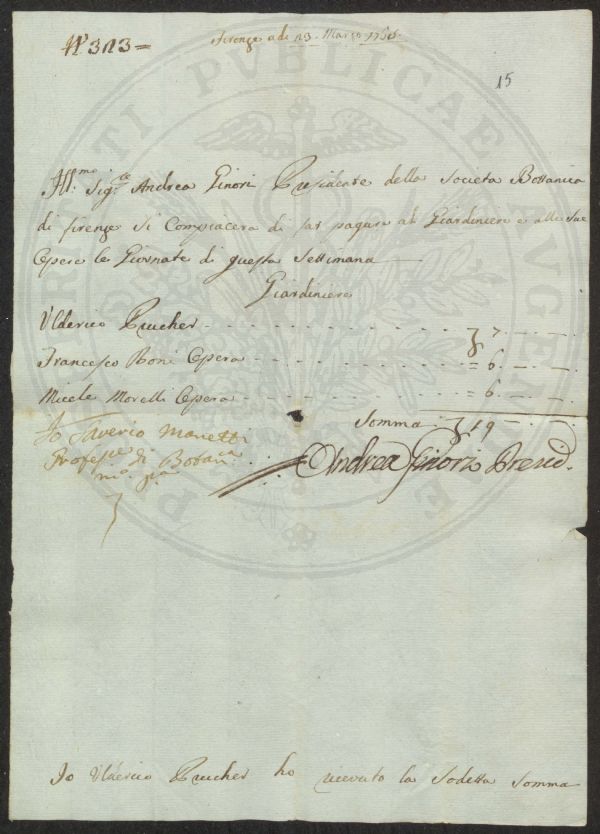 N° 323 =
Firenze adi 23. Marzo 1765.
15
Ill.mo Sig.re Andrea Ginori Presidente della Societa Bottanica
di firenze Si Compiacera di far pagare al Giardiniere e alle Sue
Opere le Giornate di questa Settimana
Giardiniere
Ulderico Prucher - - - 7 - -
Francesco Boni Opera - - - = 6 - -
Micele Morelli Opera - - - = 6 - -
Somma 19 - -
Io Saverio Manetti
Profess.e di Botan.ca
m.o p.a
Andrea Ginori Presid.
Io Ulderico Prucher ho riceuto la Sodetta Somma
PUBLICAE